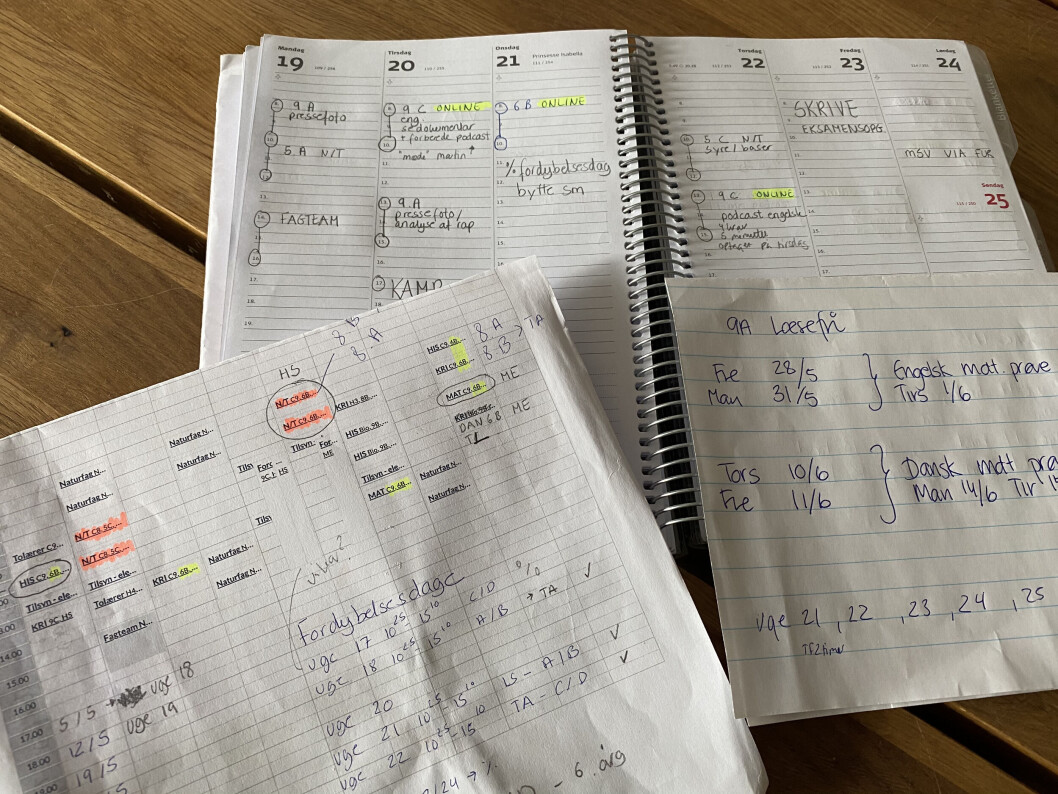 Mandag
19
9 A
pressefoto
5.A N/T
FAGTEAM
Tirsdag
20
9 C ONLINE
eng.
se dokumentar
+ forberede podcast
"mode" martin ↑
9.A
pressefoto/
analyse af rap
KAMP
Onsdag
21
Prinsesse Isabella
6 B ONLINE
% fordybelsesdag
bytte sm
Torsdag
22
5 C N/T
syre/baser
9 C ONLINE
podcast engelsk
5 minutter
optaget på tirsdag
Fredag
23
SKRIVE
EKSAMENSOPG.
Lørdag
24
MSV VIA FUR
Søndag
25
8 B
8.A
HS
N/T C9, 6B,...
N/T C9, 6B,...
KRI H3, 8B,...
HIS C9, 6B,... 8.A
KRI C9, 6B,... 8 B → TA
MAT C9, 6B,... ME
DAN 6B ME
TL
HIS Bio, 9B...
HIS Bio, 9B...
Tilsyn - ele...
MAT C9, 6B,...
Naturfag N...
Naturfag N...
Tilsyn
For...
ME
Tils
Fors
9C.I: HS
Tilsy
Naturfag N...
Naturfag N...
Naturfag N...
Naturfag N...
N/T C8, 5C,...
N/T C8, 5C,...
Tilsyn - ele...
Tolærer H4...
Fagteam N...
KRI C9, 6B,...
Naturfag N...
Naturfag N...
Tolærer C9...
HIS C9, 6B,...
Tilsyn - ele...
KRI 9C HS
14.00
15.00
16.00
17.00
18.00
19.00
5/5 → uge 18
12/5 uge 19
19/5
Fordybelsesdage
uge 17 10²⁵ - 15¹⁰ C/D %
uge 18 10²⁵ - 15¹⁰ A/B → TA ✓
uge 20
uge 21 10²⁵ - 15¹⁰ LS - A/B ✓
uge 22 10²⁵ - 15¹⁰ TA - C/D ✓
/24 → %
- 6. årg
9A Læsefri
Fre 28/5 } Engelsk mdt. prøve
Man 31/5 Tirs 1/6
Tors 10/6 } Dansk mdt
Fre 11/6 Man 14/6 Tir
uge 21, 22, 23, 24, 25